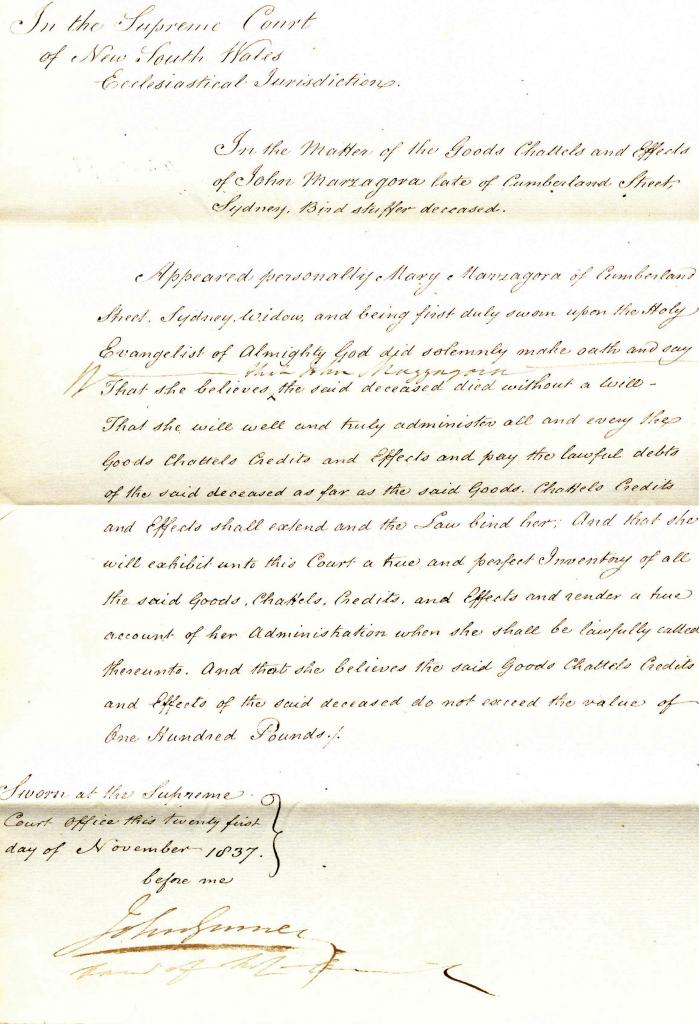 In the Supreme Court
of New South Wales
Ecclesiastical Jurisdiction.
In the Matter of the Goods Chattels and Effects
of John Marzagora late of Cumberland Street,
Sydney, Bird stuffer deceased.
Appeared personally Mary Marzagora of Cumberland
Street, Sydney, Widow, and being first duly sworn upon the Holy
Evangelist of Almighty God did solemnly make oath and say
John Mazzagora
That she believes ‸ the said deceased died without a Will -
That she will well and truly administer all and every the
Goods Chattels Credits and Effects and pay the lawful debts
of the said deceased as far as the said Goods. Chattels Credits
and Effects shall extend and the Law bind her; And that she
will exhibit unto this Court a true and perfect Inventory of all
the said Goods, Chattels, Credits, and Effects and render a true
account of her Administration when she shall be lawfully called
thereunto. And that she believes the said Goods Chattels Credits
and Effects of the said deceased do not exceed the value of
One Hundred Pounds./.
Sworn at the Supreme
Court Office this twenty first
day of November 1837.
before me
John Gurner